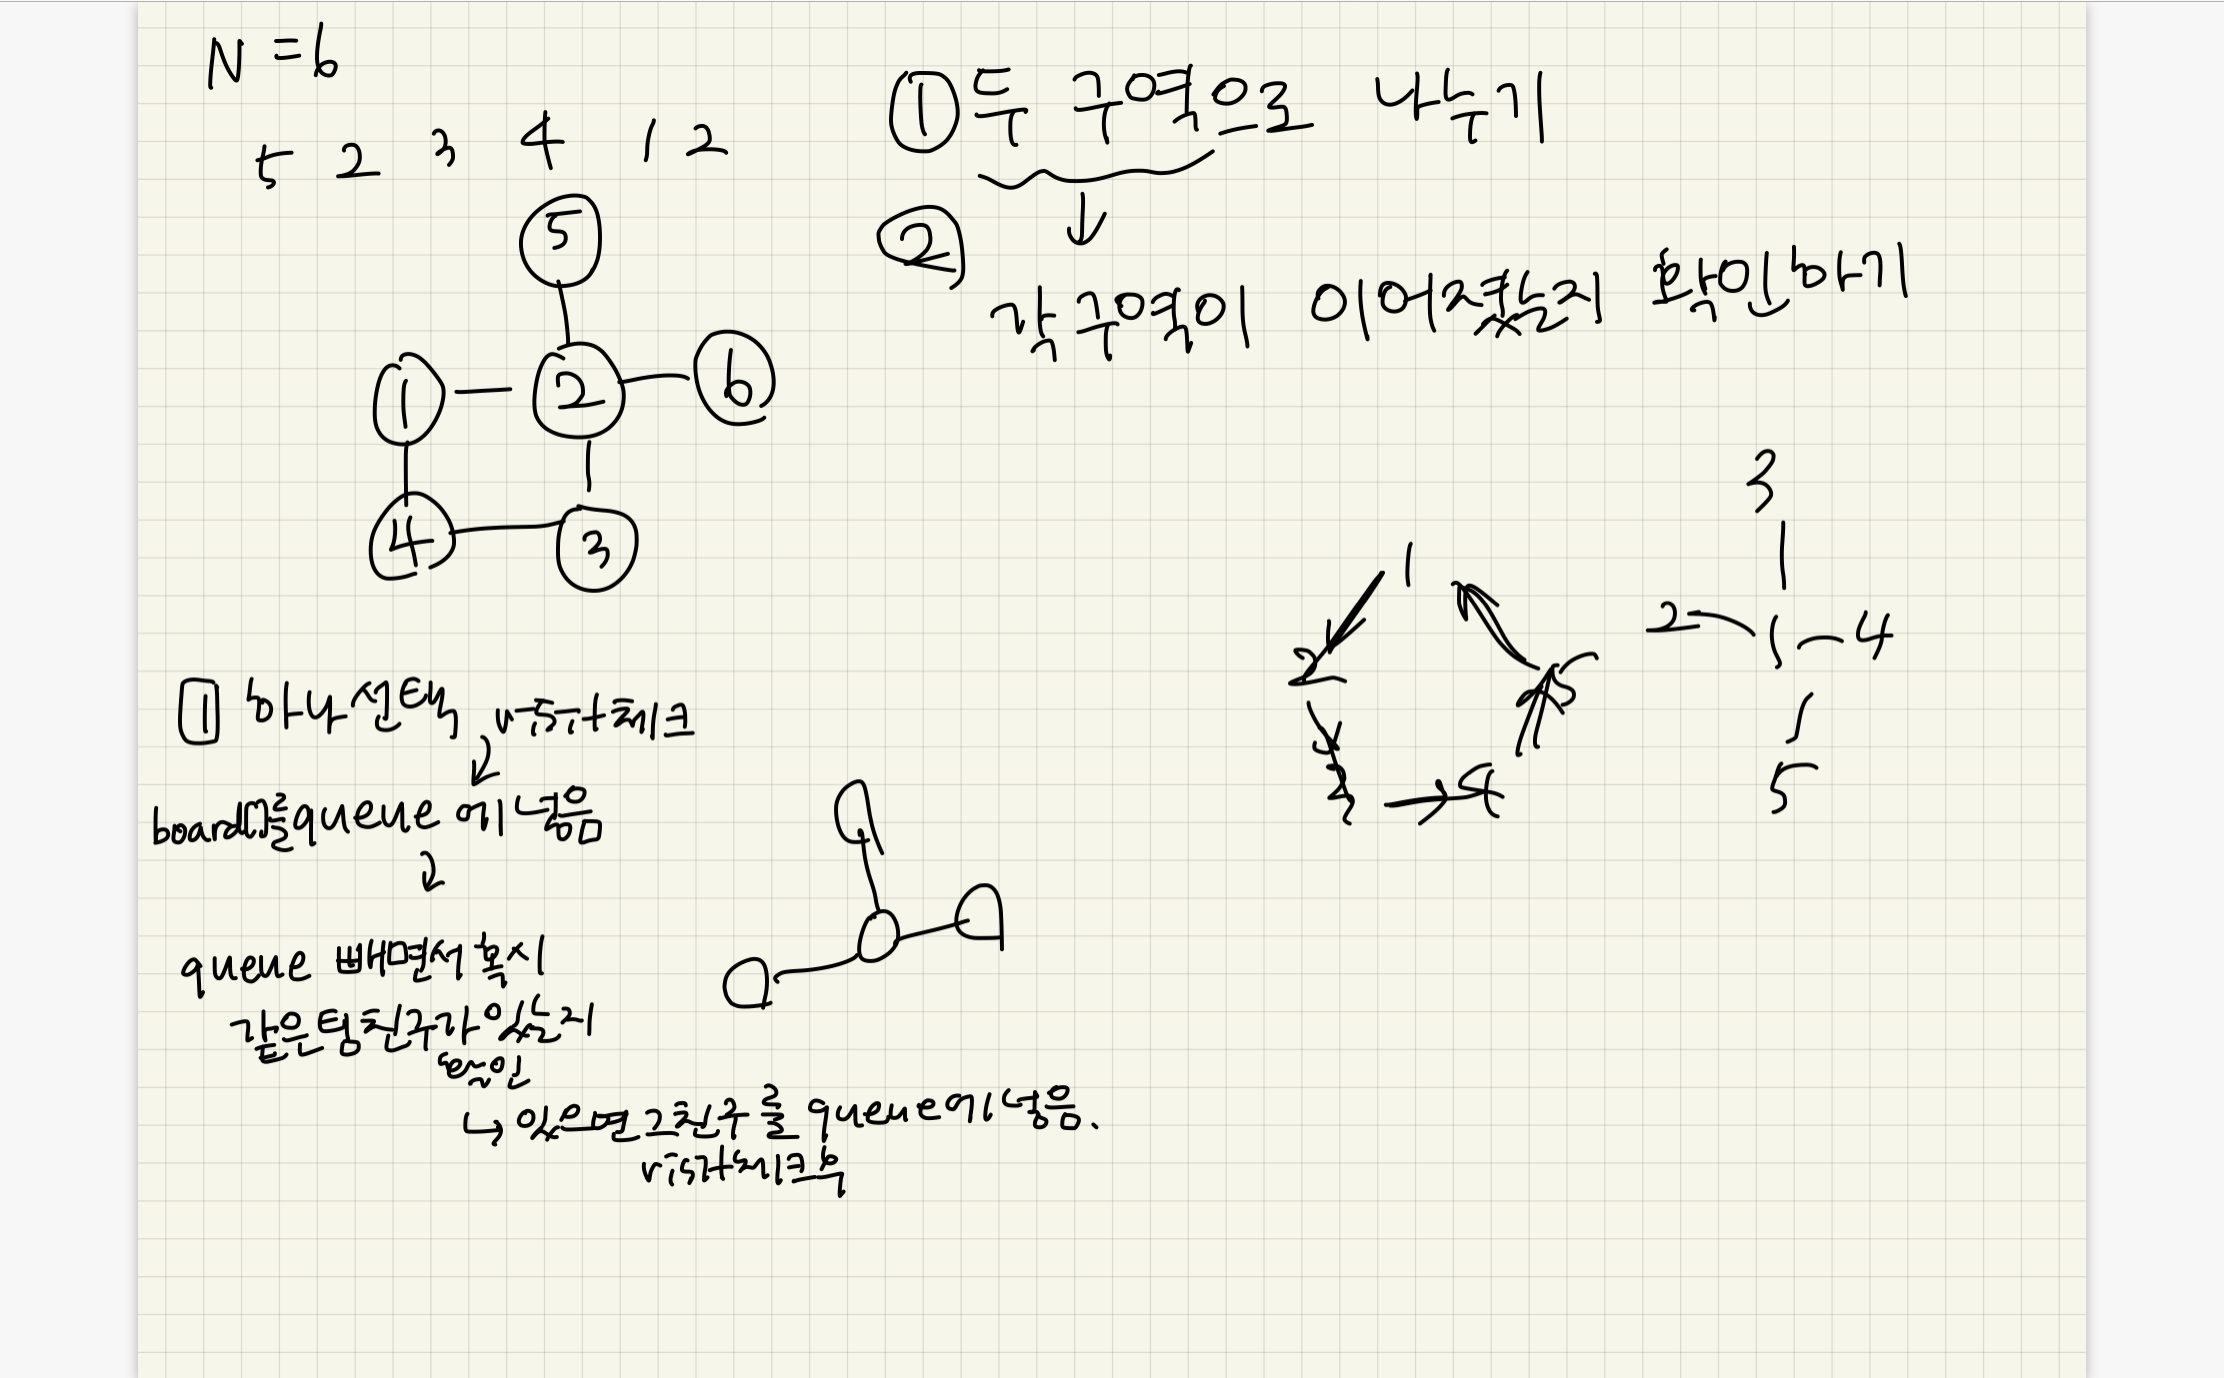 N = 6
5 2 3 4 1 2
① 두 구역으로 나누기
②
각 구역이 이어졌는지 확인하기
5
1 2 6
4 3
3
1
2 1 4
2 5
3 4
5
1 하나 선택 visit 체크
board[]를 queue에 넣음
queue 빼면서 혹시
같은 팀 친구가 있는지
확인
↳ 있으면 그 친구를 queue에 넣음.
visit 체크 후